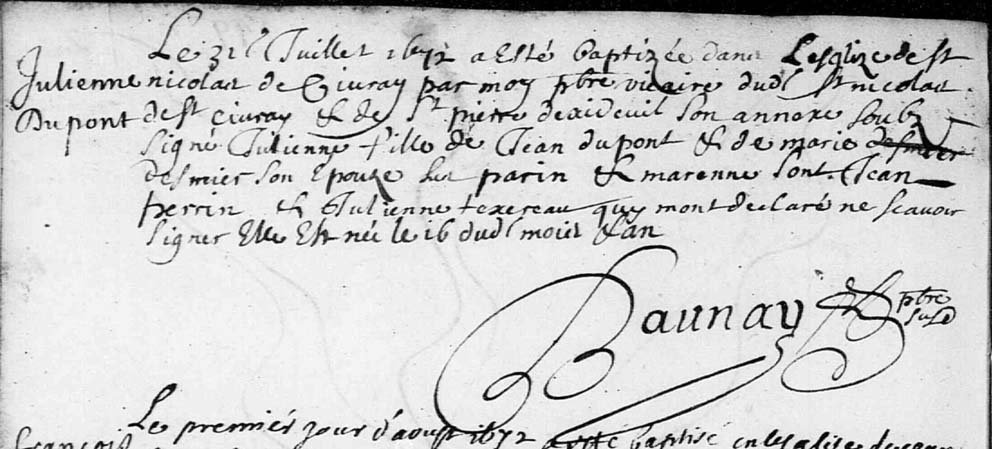 Le 31e Juillet 1672 a Esté baptizée dans Lesglize de st
Julienne nicolas de Civray par moy pbre vicaire dud st nicolas
Dupont de st civray & de st pierre son annexe soubz
signé Julienne fille de Jean dupont & de marie desmier
desmier son Epouze parin & marenne sont Jean
perrin & Julienne texereau quy mont declaré ne scavoir
signer Elle Est née le 16 dud mois & an
Baunay pbre
susd
Le premier jour d'aoust 1672 a esté baptisé en
françois